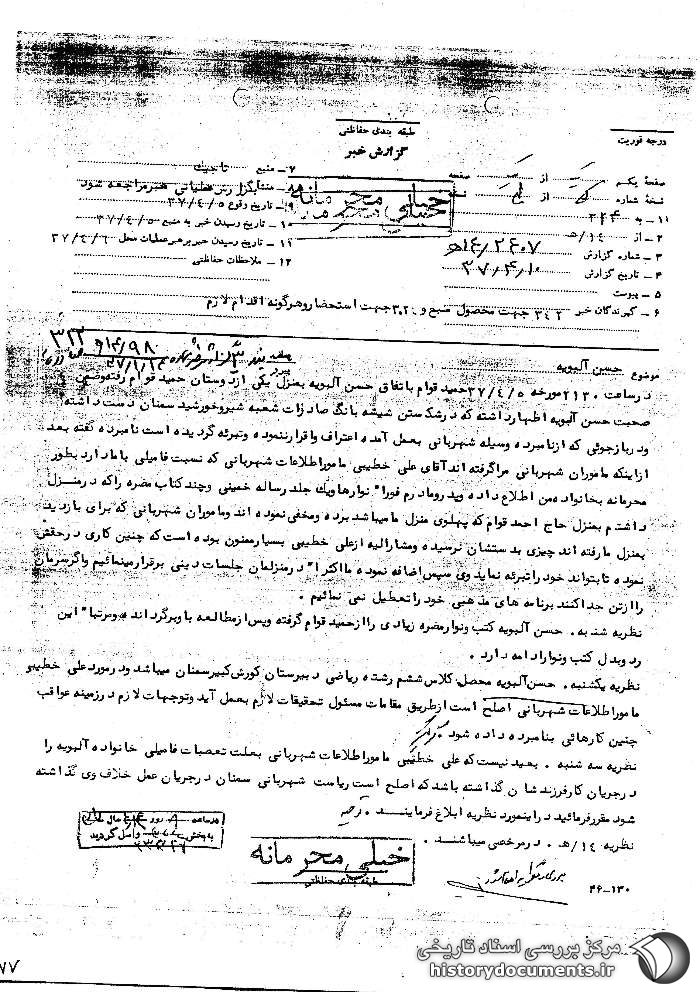 طبقه بندی حفاظتی
گزارش خبر
درجه فوریت
صفحه یکم از صفحه
نسخه شماره از نسخه
خیلی محرمانه
۱ - به ۳۲۴
۲ - از ۱۴/ ه
۳ - شماره گزارش ۱۴/۲۶۰۷ ه
۴ - تاریخ گزارش ۳۷/۴/۱۰
۵ - پیوست
۶ - گیرندگان خبر ۳۴۲ جهت محصول منبع و ۳۰۲۰ جهت استحضار و هرگونه اقدام لازم
۷ - منبع تاجیک
۸ - منشأ بگزارش عملیاتی مراجعه شود
۹ - تاریخ وقوع ۳۷/۴/۵
۱۰ - تاریخ رسیدن خبر به منبع ۳۷/۴/۵
۱۱ - تاریخ رسیدن خبر برهبر عملیات محل ۳۷/۴/۶
۱۲ - ملاحظات حفاظتی
موضوع حسن آلبویه
در ساعت ۲۱۳۰ مورخه ۳۷/۴/۵ حمید قوام باتفاق حسن آلبویه بمنزل یکی از دوستان حمید قوام رفته و ضمن
صحبت حسن آلبویه اظهار داشته که در شکستن شیشه بانک صادرات شعبه شیر و خورشید سمنان دست داشته
و در بازجوئی که از نامبرده وسیله شهربانی بعمل آمده اعتراف و اقرار ننموده و تبرئه گردیده است نامبرده گفته بعد
از اینکه ماموران شهربانی مرا گرفته اند آقای علی خطیبی مامور اطلاعات شهربانی که نسبت فامیلی با ما دارد بطور
محرمانه بخانواده من اطلاع داده و پدر و مادرم فورا" نوارها و یک جلد رساله خمینی و چند کتاب مضره را که در منزل
داشتم بمنزل حاج احمد قوام که پهلوی منزل ما میباشد برده و مخفی نموده اند و ماموران شهربانی که برای بازدید
بمنزل ما رفته اند چیزی بدستشان نرسیده و مشارالیه از علی خطیبی بسیار ممنون بوده است که چنین کاری در حقش
نموده تا بتواند خود را تبرئه نماید وی سپس اضافه نموده ما اکثرا" در منزلمان جلسات دینی برقرار مینمائیم و اگر سرمان
را از تن جدا کنند برنامه های مذهبی خود را تعطیل نمی نمائیم .
نظریه شنبه . حسن آلبویه کتب و نوار مضره زیادی را از حمید قوام گرفته و پس از مطالعه با و برگردانده و مرتبا" این
رد و بدل کتب و نوار ادامه دارد .
نظریه یکشنبه . حسن آلبویه محصل کلاس ششم رشته ریاضی دبیرستان کورش کبیر سمنان میباشد و در مورد علی خطیبی
مامور اطلاعات شهربانی اصلح است از طریق مقامات مسئول تحقیقات لازم بعمل آید و توجهات لازم در زمینه عواقب
چنین کارهائی بنامبرده داده شود .
نظریه سه شنبه . بعید نیست که علی خطیبی مامور اطلاعات شهربانی بعلت تعصبات فامیلی خانواده آلبویه را
در جریان کار فرزندشان گذاشته باشد که اصلح است ریاست شهربانی سمنان در جریان عمل خلاف وی گذاشته
شود مقرر فرمائید در اینمورد نظریه ابلاغ فرمایند .
نظریه ۱۴/ ه . در مرخصی میباشند .
خیلی محرمانه
طبقه بندی حفاظتی
۴۶-۱۳۰
۷۷
مرکز بررسی اسناد تاریخی
historydocuments.ir